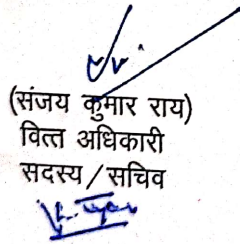 (संजय कुमार राय)
वित्त अधिकारी
सदस्य/सचिव